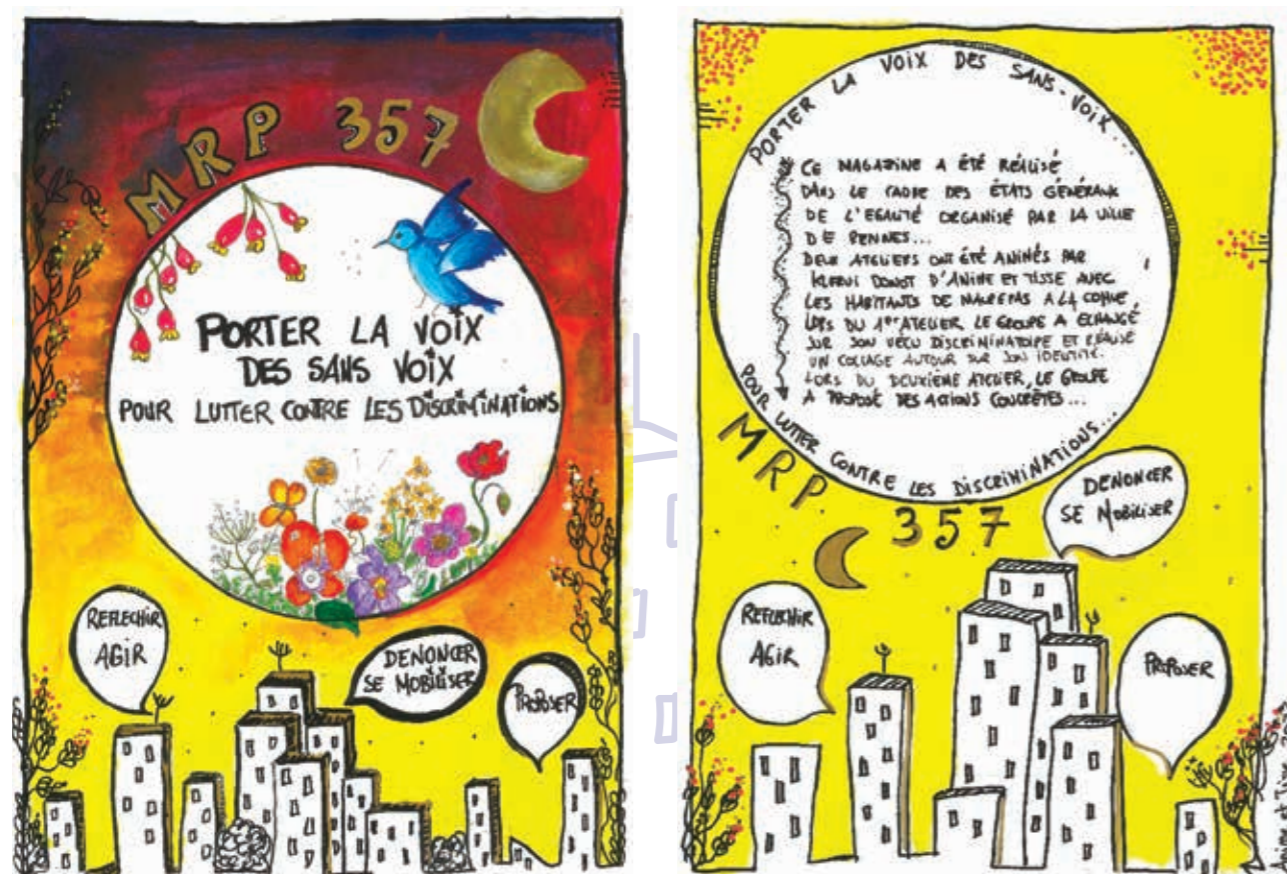 MRP 357
PORTER LA VOIX
DES SANS VOIX
POUR LUTTER CONTRE LES DISCRIMINATIONS
REFLECHIR
AGIR
DENONCER
SE MOBILISER
PROPOSER
PORTER LA VOIX DES SANS-VOIX...
CE MAGAZINE A ÉTÉ RÉALISÉ
DANS LE CADRE DES ÉTATS GÉNÉRAUX
DE L'EGALITÉ ORGANISÉ PAR LA VILLE
DE RENNES...
DEUX ATELIERS ONT ÉTÉ ANIMÉS PAR
DONOT D'ANIME ET TISSE AVEC
LES HABITANTS DE MAUREPAS A LA COHUE,
LORS DU 1er ATELIER LE GROUPE A ECHANGÉ
SUR SON VÉCU DISCRIMINATOIRE ET RÉALISÉ
UN COLLAGE AUTOUR SUR SON IDENTITÉ.
LORS DU DEUXIÈME ATELIER, LE GROUPE
A PROPOSÉ DES ACTIONS CONCRÈTES...
POUR LUTTER CONTRE LES DISCRIMINATIONS...
MRP 357
DENONCER
SE MOBILISER
REFLECHIR
AGIR
PROPOSER
Anime et Tisse